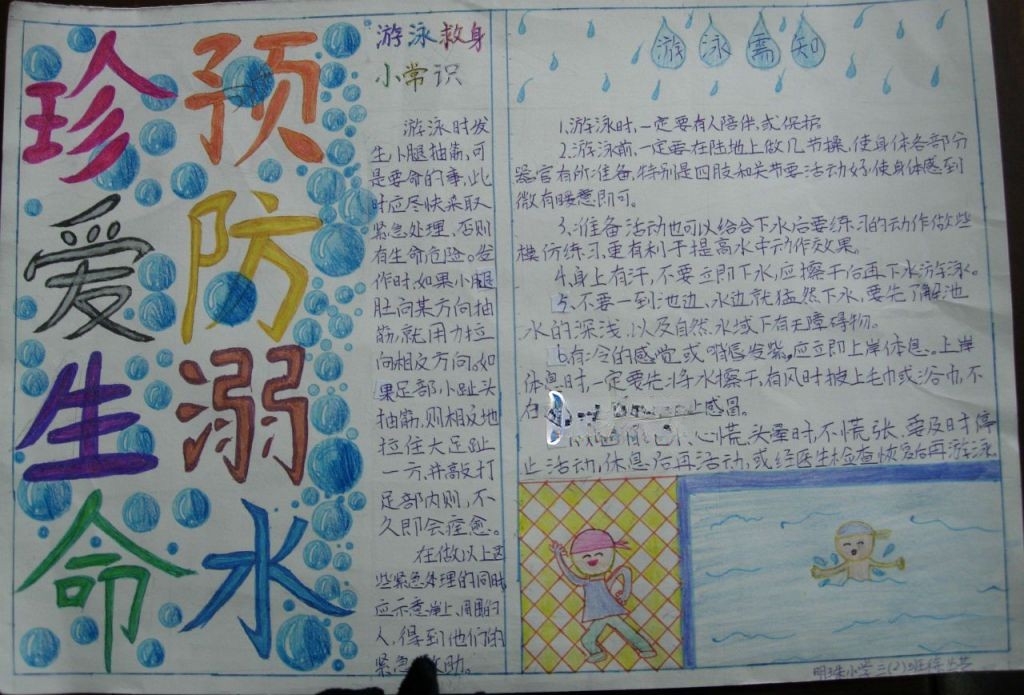 珍爱生命
预防溺水
游泳救身
小常识
游泳时发
生小腿抽筋,可
是要命的事,此
时应尽快采取
紧急处理,否则
有生命危险。发
作时,如果小腿
肚向某方向抽
筋,就用力拉
向相反方向。如
果足部小趾头
抽筋,则相反地
拉住大足趾
一方,并敲打
足部内则,不
久即会痊愈。
在做以上这
些紧急处理的同时,
应示意岸上、周围的
人,得到他们的
紧急助。
游泳需知
1.游泳时,一定要有人陪伴或保护
2.游泳前,一定要在陆地上做几节操,使身体各部分
器官有所准备,特别是四肢和关节要活动好,使身体感到
微有暖意即可。
3.准备活动也可以结合下水后要练习的动作做些
模仿练习,更有利于提高水中动作效果。
4.身上有汗,不要立即下水,应擦干后再下水游泳。
5.不要一到池边、水边就猛然下水,要先了解池
水的深浅,以及自然水域下有无障碍物。
6.有冷的感觉或嘴唇发紫,应立即上岸休息。上岸
休息时,一定要先将水擦干,有风时披上毛巾或浴巾,不
上感冒。
心慌、头晕时,不慌张,要及时停
止活动,休息后再活动,或经医生检查恢复后再游泳。
明珠小学二(2)班